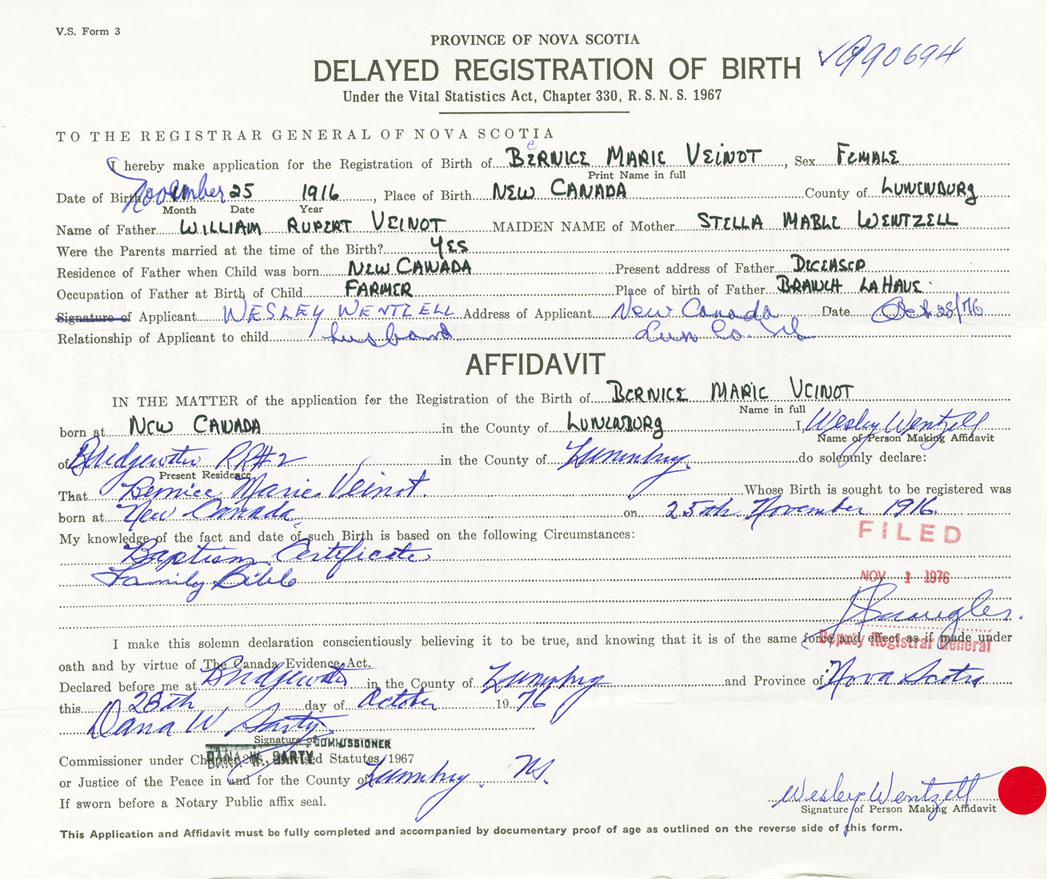 V.S. Form 3
PROVINCE OF NOVA SCOTIA
DELAYED REGISTRATION OF BIRTH 990694
Under the Vital Statistics Act, Chapter 330, R. S. N. S. 1967
TO THE REGISTRAR GENERAL OF NOVA SCOTIA
I hereby make application for the Registration of Birth of BERNICE MARIE VEINOT, Sex FEMALE
Print Name in full
Date of Birth November 25 1916, Place of Birth NEW CANADA County of LUNENBURG
Month Date Year
Name of Father WILLIAM RUPERT VEINOT MAIDEN NAME of Mother STELLA MABLE WENTZELL
Were the Parents married at the time of the Birth? YES
Residence of Father when Child was born NEW CANADA Present address of Father DECEASED
Occupation of Father at Birth of Child FARMER Place of birth of Father BRANCH LAHAVE
Signature of Applicant WESLEY WENTZELL Address of Applicant New Canada Date Oct 28/76
Relationship of Applicant to child husband Lun Co.
AFFIDAVIT
IN THE MATTER of the application for the Registration of the Birth of BERNICE MARIE VEINOT
Name in full
born at NEW CANADA in the County of LUNENBURG I, Wesley Wentzell
Name of Person Making Affidavit
of Bridgewater RR#2 in the County of Lunenburg do solemnly declare:
Present Residence
That Bernice Marie Veinot Whose Birth is sought to be registered was
born at New Canada on 25th November 1916
My knowledge of the fact and date of such Birth is based on the following Circumstances:
FILED
Baptism Certificate
Family Bible
NOV 1 1976
I make this solemn declaration conscientiously believing it to be true, and knowing that it is of the same force and effect as if made under
Deputy Registrar General
oath and by virtue of The Canada Evidence Act.
Declared before me at Bridgewater in the County of Lunenburg and Province of Nova Scotia
this 28th day of October 1976
Dana W Sarty
Signature of COMMISSIONER
Commissioner under Chapter Revised Statutes 1967
DANA W. SARTY
or Justice of the Peace in and for the County of Lunenburg NS.
If sworn before a Notary Public affix seal.
Wesley Wentzell
Signature of Person Making Affidavit
This Application and Affidavit must be fully completed and accompanied by documentary proof of age as outlined on the reverse side of this form.